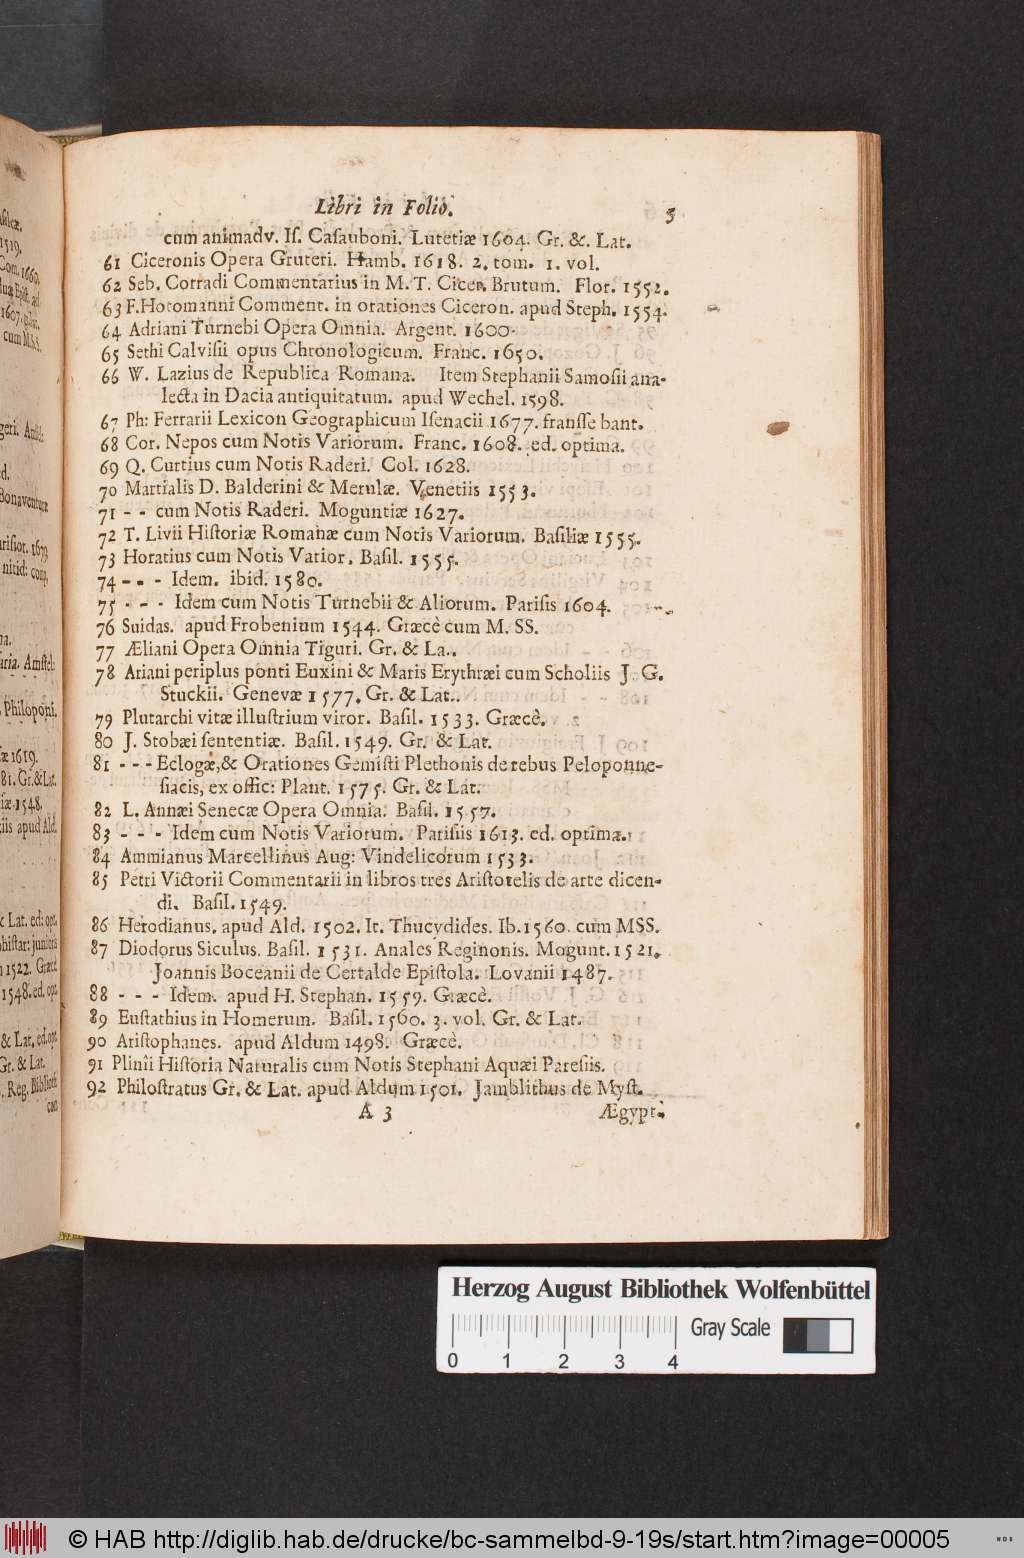 Libri in Folio. 5
cum animadv. Iſ. Caſauboni. Lutetiæ 1604. Gr. &. Lat.
61 Ciceronis Opera Gruteri. Hamb. 1618. 2. tom. 1. vol.
62 Seb. Corradi Commentarius in M. T. Cicer. Brutum. Flor. 1552.
63 F. Hotomanni Comment. in orationes Ciceron. apud Steph. 1554.
64 Adriani Turnebi Opera Omnia. Argent. 1600.
65 Sethi Calviſii opus Chronologicum. Franc. 1650.
66 W. Lazius de Republica Romana. Item Stephanii Samoſii ana-
lecta in Dacia antiquitatum. apud Wechel. 1598.
67 Ph: Ferrarii Lexicon Geographicum Iſenacii 1677. franſſe bant.
68 Cor. Nepos cum Notis Variorum. Franc. 1608. ed. optima.
69 Q. Curtius cum Notis Raderi. Col. 1628.
70 Martialis D. Balderini & Merulæ. Venetiis 1553.
71 - - cum Notis Raderi. Moguntiæ 1627.
72 T. Livii Hiſtoriæ Romanæ cum Notis Variorum. Baſiliæ 1555.
73 Horatius cum Notis Varior. Baſil. 1555.
74 - - - Idem. ibid. 1580.
75 - - - Idem cum Notis Turnebii & Aliorum. Pariſis 1604.
76 Suidas. apud Frobenium 1544. Græcè cum M. SS.
77 Æliani Opera Omnia Tiguri. Gr. & La..
78 Ariani periplus ponti Euxini & Maris Erythræi cum Scholiis J. G.
Stuckii. Genevæ 1577. Gr. & Lat..
79 Plutarchi vitæ illuſtrium viror. Baſil. 1533. Græcè.
80 J. Stobæi ſententiæ. Baſil. 1549. Gr. & Lat.
81 - - - Eclogæ, & Orationes Gemiſti Plethonis de rebus Peloponne-
ſiacis, ex offic: Plant. 1575. Gr. & Lat.
82 L. Annæi Senecæ Opera Omnia. Baſil. 1557.
83 - - - Idem cum Notis Variorum. Pariſiis 1613. ed. optima.
84 Ammianus Marcellinus Aug: Vindelicorum 1533.
85 Petri Victorii Commentarii in libros tres Ariſtotelis de arte dicen-
di. Baſil. 1549.
86 Herodianus. apud Ald. 1502. It. Thucydides. Ib. 1560. cum MSS.
87 Diodorus Siculus. Baſil. 1531. Anales Reginonis. Mogunt. 1521.
Joannis Boceanii de Certalde Epiſtola. Lovanii 1487.
88 - - - Idem. apud H. Stephan. 1559. Græcè.
89 Euſtathius in Homerum. Baſil. 1560. 3. vol. Gr. & Lat.
90 Ariſtophanes. apud Aldum 1498. Græcè.
91 Plinii Hiſtoria Naturalis cum Notis Stephani Aquæi Pareſiis.
92 Philoſtratus Gr. & Lat. apud Aldum 1501. Jamblithus de Myſt.
A 3 Ægypt.
Herzog August Bibliothek Wolfenbüttel
0 1 2 3 4 Gray Scale
© HAB http://diglib.hab.de/drucke/bc-sammelbd-9-19s/start.htm?image=00005